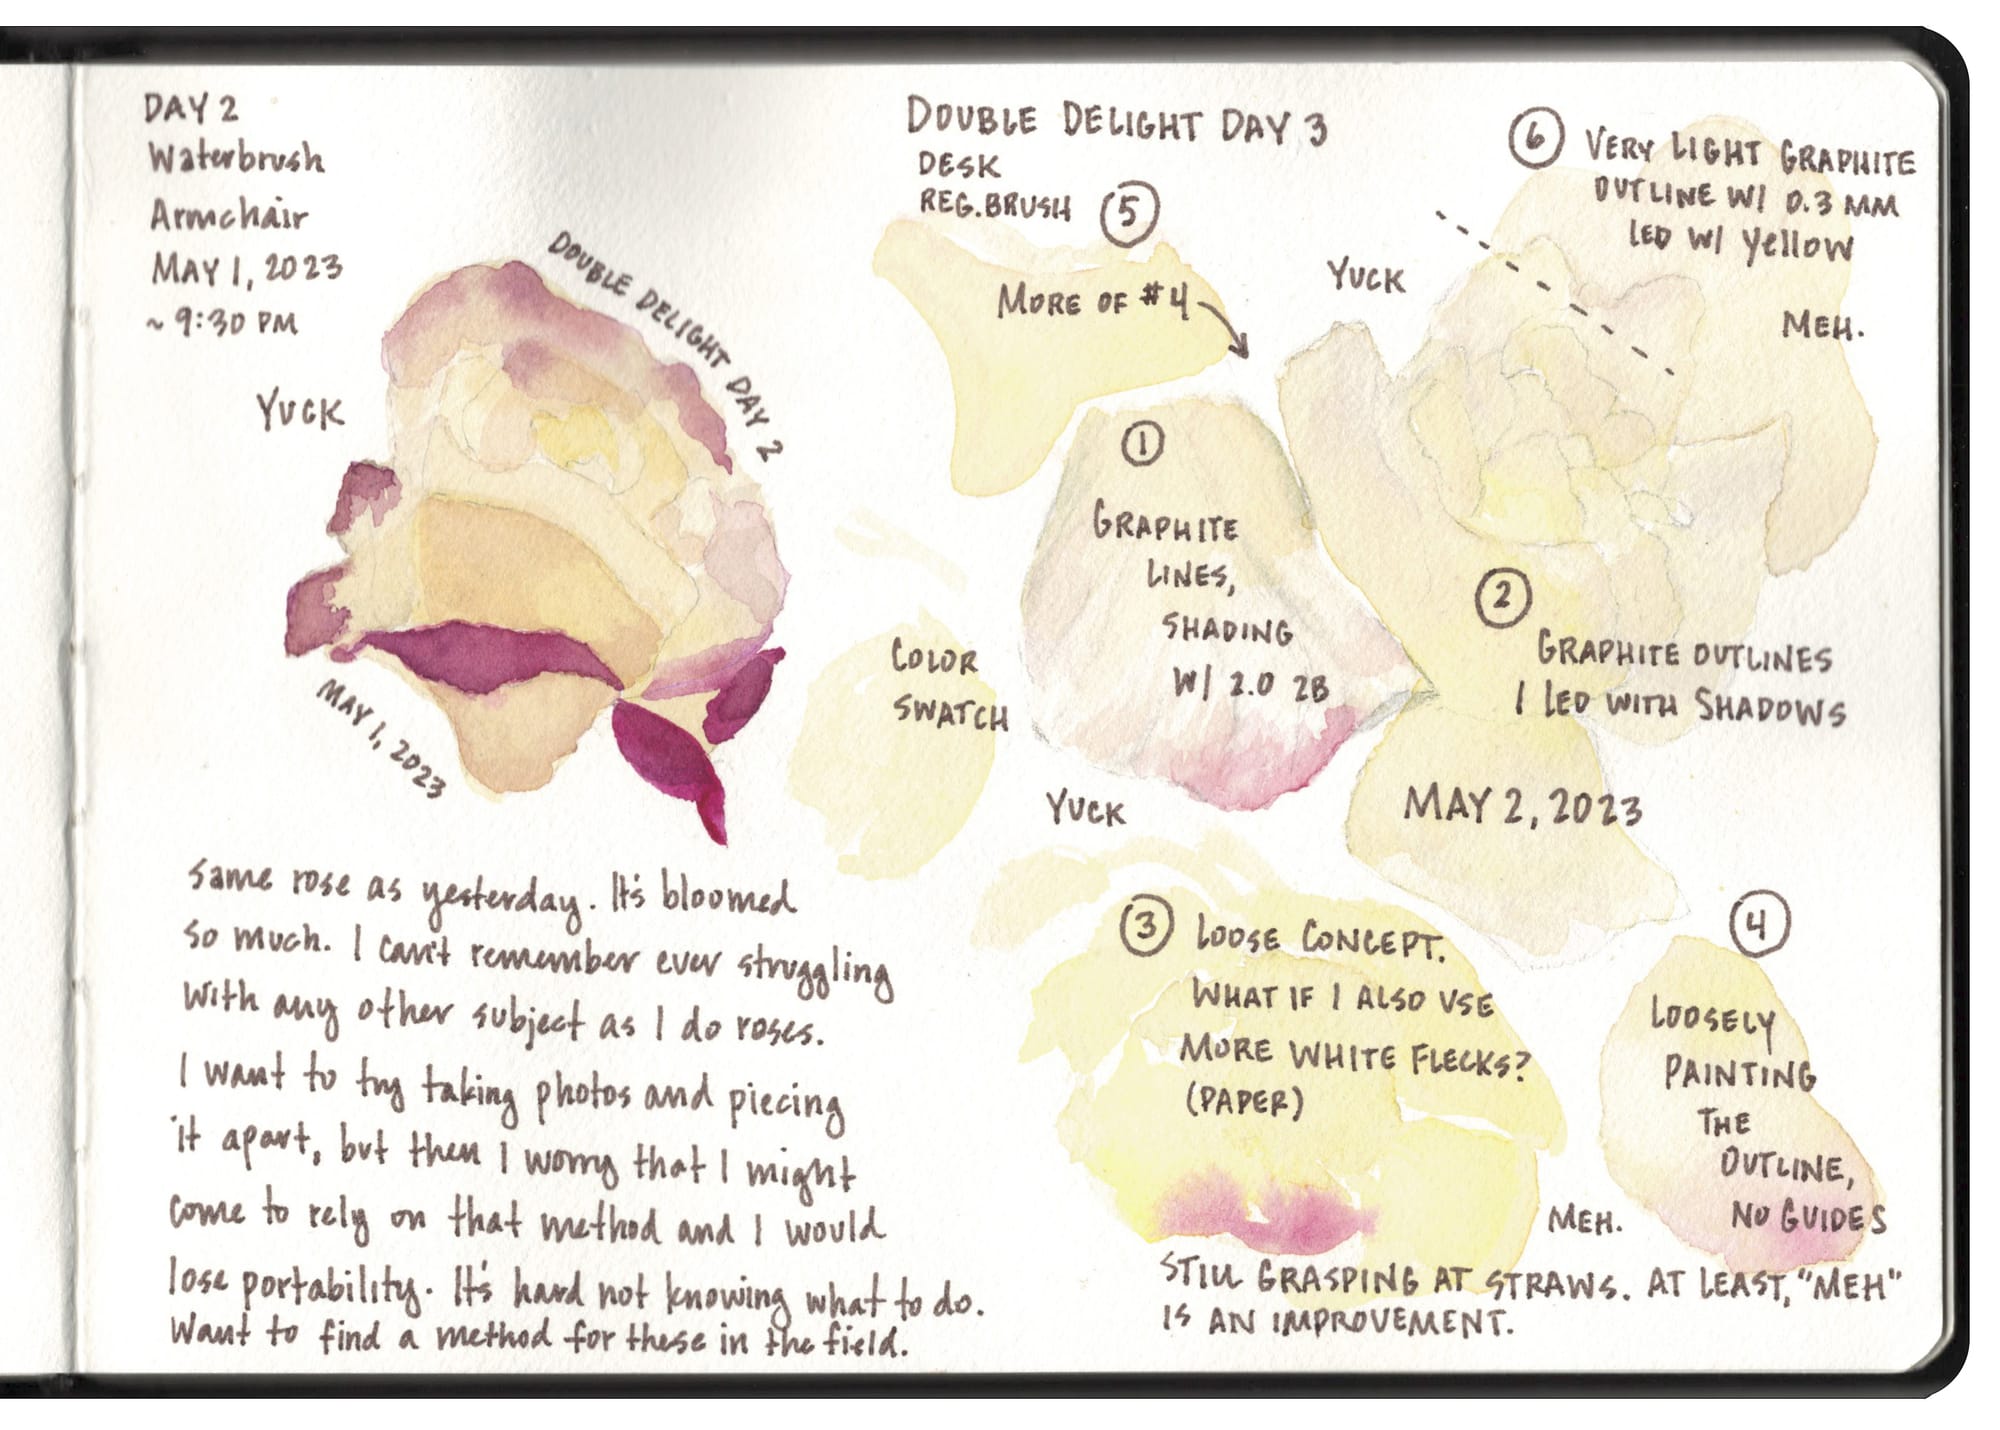 DAY 2
Waterbrush
Armchair
MAY 1, 2023
~ 9:30 PM
YUCK
DOUBLE DELIGHT DAY 2
MAY 1, 2023
Same rose as yesterday. It's bloomed
so much. I can't remember ever struggling
with any other subject as I do roses.
I want to try taking photos and piecing
it apart, but then I worry that I might
come to rely on that method and I would
lose portability. It's hard not knowing what to do.
Want to find a method for these in the field.
DOUBLE DELIGHT DAY 3
DESK
REG. BRUSH
5
MORE OF #4
6 VERY LIGHT GRAPHITE
OUTLINE W/ 0.3 MM
LED W/ Yellow
YUCK
MEH.
1
GRAPHITE
LINES,
SHADING
W/ 2.0 2B
COLOR
SWATCH
YUCK
2
GRAPHITE OUTLINES
I LED WITH SHADOWS
MAY 2, 2023
3 LOOSE CONCEPT.
WHAT IF I ALSO USE
MORE WHITE FLECKS?
(PAPER)
MEH.
4
LOOSELY
PAINTING
THE
OUTLINE,
NO GUIDES
STILL GRASPING AT STRAWS. AT LEAST, "MEH"
IS AN IMPROVEMENT.